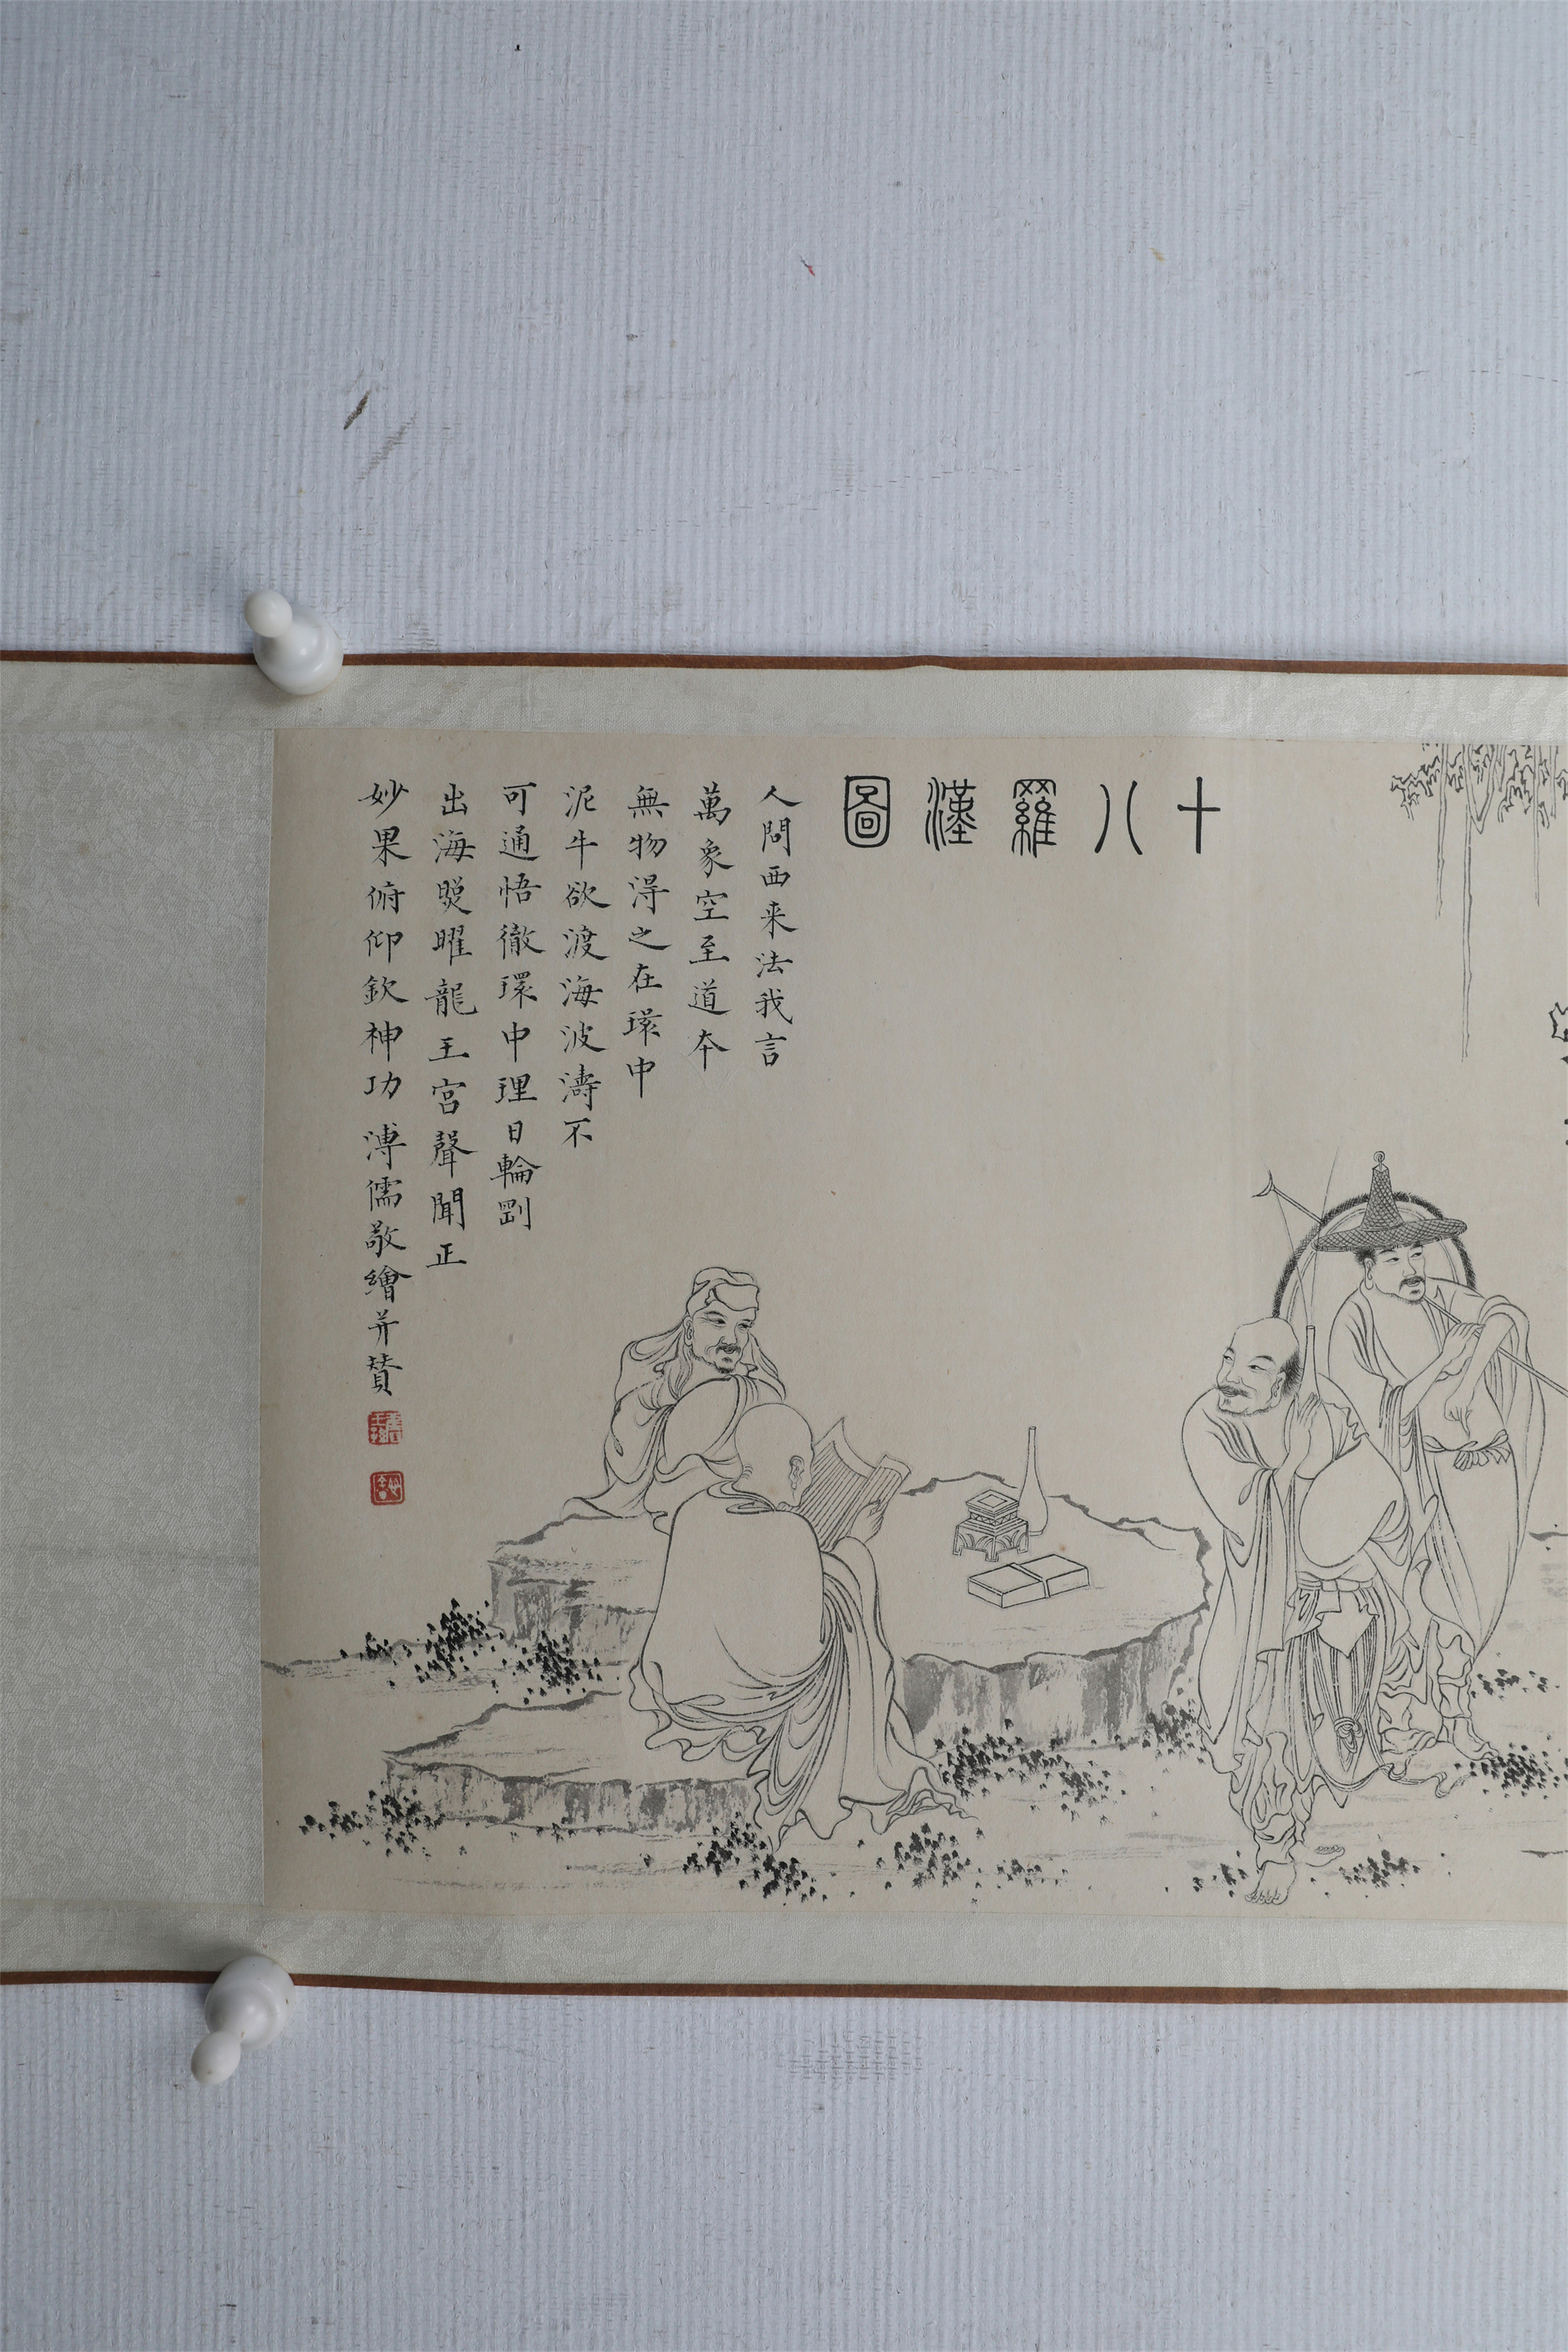 十八羅漢圖
人問西来法我言
萬象空至道本
無物得之在環中
泥牛欲渡海波濤不
可通悟徹環中理日輪
出海曉曜龍王宮聲聞正
妙果俯仰欽神功 溥儒敬繪并贊